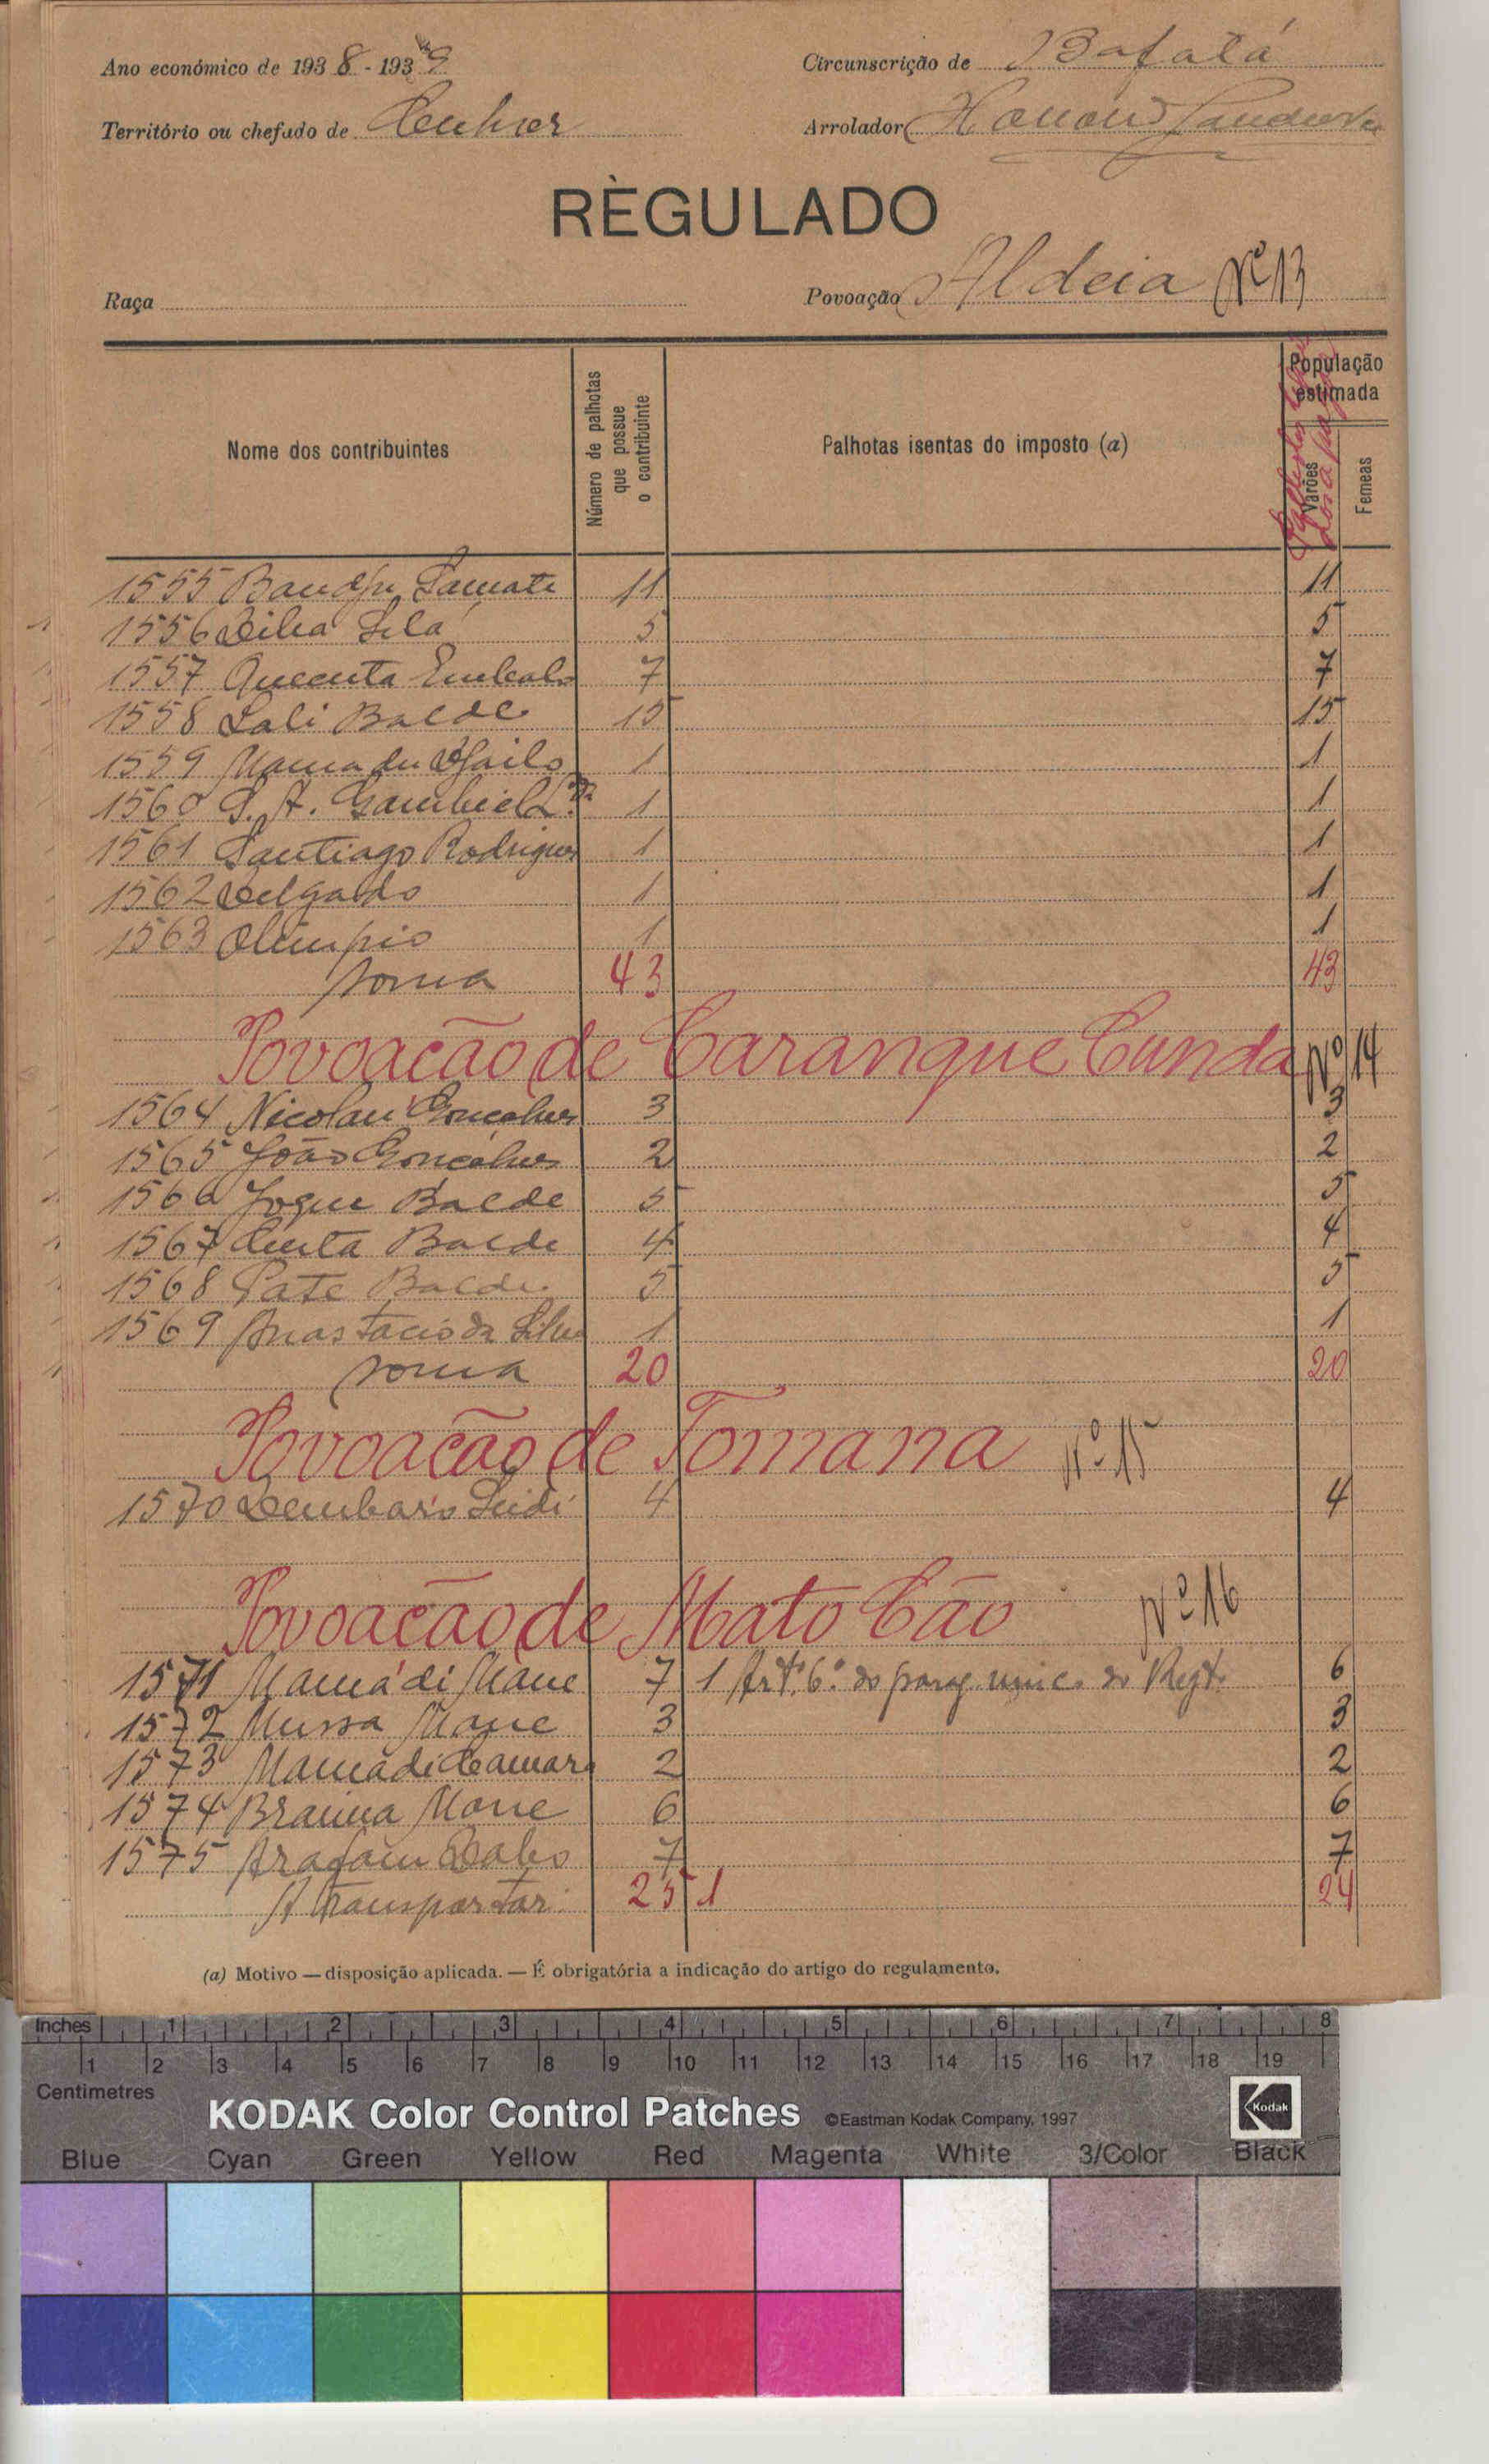 Ano económico de 1938-1939
Circunscrição de Bafatá
Território ou chefado de
Arrolador
RÈGULADO
Raça
Povoação Aldeia Nº 13
Nome dos contribuintes
Número de palhotas que possue o contribuinte
Palhotas isentas do imposto (a)
População estimada
Varões
Femeas
1555 11 11
1556 5 5
1557 Quecuta Embalo 7 7
1558 Sali Balde 15 15
1559 Mamadu 1 1
1560 S. A. 1 1
1561 Santiago Rodrigues 1 1
1562 Delgado 1 1
1563 Olimpio 1 1
soma 43 43
Povoacão de Caranque Cunda Nº 14
1564 Nicolau Gonçalves 3 3
1565 João Gonçalves 2 2
1566 Balde 5 5
1567 Balde 4 4
1568 Pate Balde 5 5
1569 Anastacio da Silva 1 1
soma 20 20
Povoacão de Tomana Nº 15
1570 4 4
Povoacão de Mato Cão Nº 16
1571 Mamádi Mane 7 1 Artº 6º do parag. unico do Regt. 6
1572 Mussa Mane 3 3
1573 Mamadi Camara 2 2
1574 Braima Mane 6 6
1575 Arafam Dabo 7 7
A transportar 25 1 24
(a) Motivo — disposição aplicada. — É obrigatória a indicação do artigo do regulamento.
Inches 1 2 3 4 5 6 7 8
1 2 3 4 5 6 7 8 9 10 11 12 13 14 15 16 17 18 19
Centimetres
KODAK Color Control Patches ©Eastman Kodak Company, 1997 Kodak
Blue Cyan Green Yellow Red Magenta White 3/Color Black